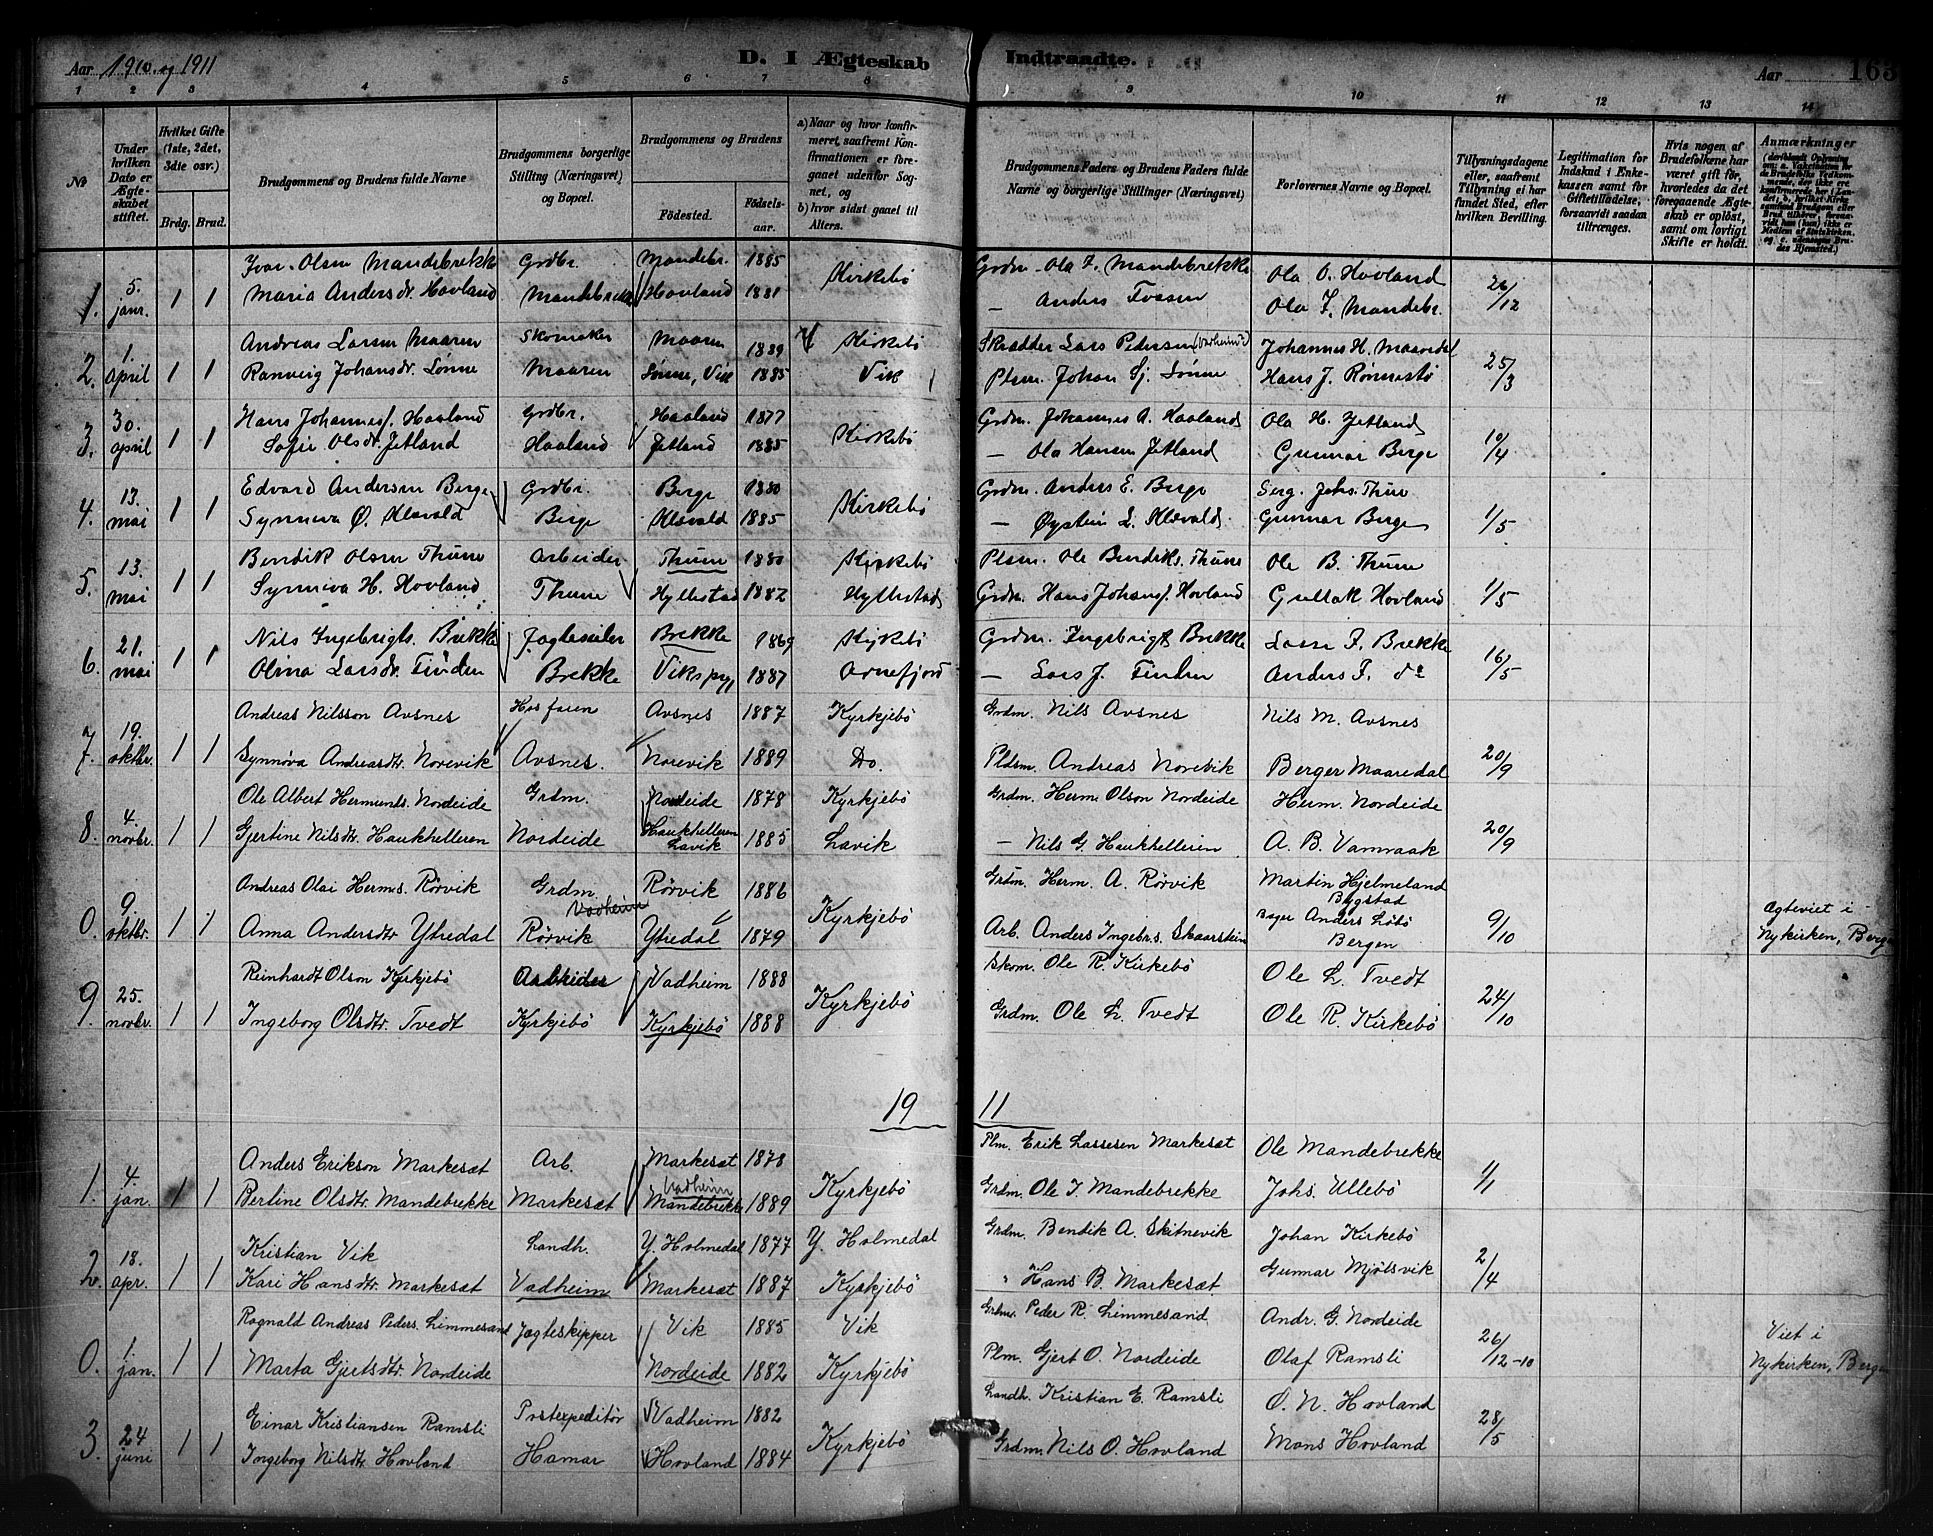 Aar 1910 og 1911 D. I Ægteskab Indtraadte. Aar 163
1 2 3 4 5 6 7 8 9 10 11 12 13 14
№
Under hvilken Dato er Ægteskabet stiftet.
Hvilket Gifte (1ste, 2det, 3dte osv.)
Brdg. Brud.
Brudgommens og Brudens fulde Navne
Brudgommens borgerlige Stilling (Næringsvei) og Bopæl.
Brudgommens og Brudens
Fødested. Fødselsaar.
a) Naar og hvor konfirmeret, saafremt Konfirmationen er foregaaet udenfor Sognet, og
b) hvor sidst gaaet til Alters.
Brudgommens Faders og Brudens Faders fulde Navne og borgerlige Stillinger (Næringsvei)
Forlovernes Navne og Bopæl.
Tillysningsdagene eller, saafremt Tillysning ei har fundet Sted, efter hvilken Bevilling.
Legitimation for Indskud i Enkekassen samt for Giftetilladelse, forsaavidt saadan tiltrænges.
Hvis nogen af Brudefolkene har været gift før, hvorledes da det foregaaende Ægteskab er opløst, samt om lovligt Skifte er holdt.
Anmærkninger
1. 5. janr. 1 1 Ivar Olsen Mandebrekke Grdbr. Mandebr. 1885 Kirkebø Grdm. Ola I. Mandebrekke Ola O. Hovland 26/12
Maria Andersdr. Hovland Mandebrekke Hovland 1881 — Anders Ola I. Mandebr.
2. 1. april 1 1 Andreas Larsen Maaren Skomaker Maaren 1889 Kirkebø Skrædder Lars Pedersen (Vadheim) Johannes H. Maaredal 25/3
Ranveig Johansdr. Sønne Maaren Sønne, Vik 1885 Vik Plsm. Johan Sj. Sønne Hans J.
3. 30. april 1 1 Hans Johannes. Haaland Grdbr. Haaland 1877 Kirkebø Grdm. Johannes A. Haaland Ola H. Jetland 10/4
Sofie Olsdr. Jetland Haaland Jetland 1885 — Ola Hansen Jetland Gunnar Berge
4. 13. mai 1 1 Edvard Andersen Berge Grdbr. Berge 1880 Kirkebø Grdm. Anders E. Berge Serg. Johs. Thue 1/5
Synneva Ø. Klævold Berge Klævold 1885 — Øystein L. Klævold Gunnar Berge
5. 13. mai 1 1 Bendik Olsen Thune Arbeider Thune 1880 Kirkebø Plsm. Ole Bendiks. Thune Ole B. Thune 1/5
Synneva H. Hovland Thune Hyllestad 1882 Hyllestad Grdm. Hans Johans. Hovland Gullak Hovland
6. 21. mai 1 1 Nils Ingebrigts. Brekke Brekke 1869 Kirkebø Grdm. Ingebrigt Brekke Lasse F. Brekke 16/5
Olina Larsdr. Finden Brekke Vikspgj 1887 Arnefjord — Lars J. Finden Anders F. do
7. 19. oktbr. 1 1 Andreas Nilsson Avsnes Hos faren Avsnes 1887 Kyrkjebø Grdm. Nils Avsnes Nils M. Avsnes 20/9
Synnøva Andreasdtr. Norevik Avsnes. Norevik 1889 Do. Pldsm. Andreas Norevik Berger Maaredal
8. 4. novbr. 1 1 Ole Albert Hermunds. Nordeide Grdm. Nordeide 1878 Kyrkjebø Grdm. Herm. Olson Nordeide Herm. Nordeide 20/9
Gjertine Nilsdtr. Haukhelleren Nordeide Haukhelleren Lavik 1885 Lavik — Nils G. Haukhelleren A. B. Vamraak
0. 9. oktbr. 1 1 Andreas Olai Herms. Rørvik Grdm. Vadheim Rørvik 1886 Kyrkjebø Grdm. Herm. A. Rørvik Martin Hjelmeland Bygstad 9/10 Ægteviet i
Anna Andersdtr Ytredal Rørvik Ytredal 1879 Arb. Anders Ingebr.s. Skaarstein Anders Løbø Bergen Nykirken, Bergen
9. 25. novbr. 1 1 Reinhardt Olson Kyrkjebø Arbeider Vadheim 1888 Kyrkjebø Skom. Ole R. Kirkebø Ole L. Tvedt 24/10
Ingeborg Olsdtr. Tvedt Kyrkjebø Kyrkjebø 1888 Grdm. Ole L. Tvedt Ole R. Kirkebø
19 11
1. 4. jan. 1 1 Anders Erikson Markesæt Arb. Markesæt 1878 Kyrkjebø Plm. Erik Lassesen Markesæt Ole Mandebrekke 1/1
Bertine Olsdtr. Mandebrekke Markesæt Vadheim Mandebrekk 1889 Grdm. Ole I. Mandebrekke Johs. Ullebø
2. 18. apr. 1 1 Kristian Vik Landh. Y. Holmedal 1877 Y. Holmedal Grdm. Bendik A. Skitnevik Johan Kirkebø 2/4
Kari Hansdtr. Markesæt Vadheim Markesæt 1887 Kyrkjebø " Hans B. Markesæt Gunnar Mjølsvik
0. 1. jan. 1 1 Ragnald Andreas Peders. Limmesand Jægteskipper Vik 1885 Vik Grdm. Peder R. Limmesand Andr. G. Nordeide 26/12-10 Viet i
Marta Gjertsdtr. Nordeide Nordeide 1882 Kyrkjebø Plm. Gjert O. Nordeide Olaf Ramsli Nykirken, Bergen
3. 24 juni 1 1 Einar Kristiansen Ramsli Postexpeditør Vadheim 1882 Kyrkjebø Landh. Kristian E. Ramsli O. N. Hovland 28/5
Ingeborg Nilsdtr. Hovland Hamar Hovland 1884 Grdm. Nils O. Hovland Mons Hovland